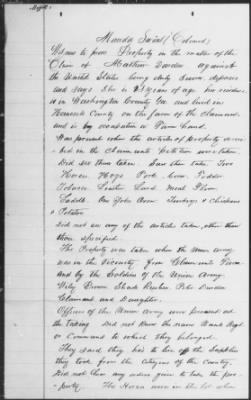 Manda Swint (Colored)
Witness to prove Property in the matter of the
Claim of Matthew Darden against
the United States being duly sworn, deposes
and says She is 23 years of age his residence
is in Washington County Ga and lived in
Hancock County on the farm of the Claimant
and is by occupation a Farm hand
Was present when the articles of property
in the Claimants Petition were taken
Did see them taken Saw them take Two
Horses Hogs Pork Corn Fodder
Lard Meal Flour
Saddle One Yoke Oxen Turkeys & Chickens
& Potatoes
Did not see any of the articles taken other than
those specified
The Property was taken when the Union Army
was in the vicinity from Claimants Farm
and by the Soldiers of the Union Army
Claimant and Daughter.
Officers of the Union Army were present at
the taking Did not know the name Rank Regt
or Command to which they belonged.
They said they has to live off the Supplies
they took from the Citizens of the County.
Did not hear any orders given to take the pro-
perty. The Horses were in the lot when